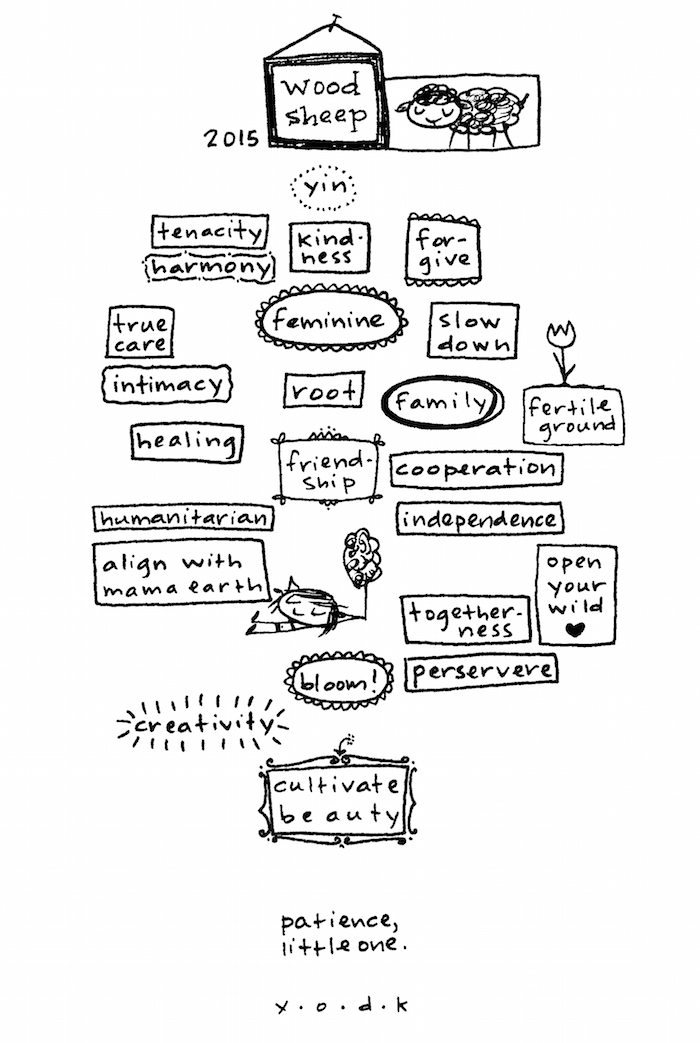 wood
sheep
2015
yin
tenacity
harmony
kind-
ness
for-
give
true
care
feminine
slow
down
intimacy
root
family
fertile
ground
healing
friend-
ship
cooperation
humanitarian
independence
align with
mama earth
open
your
wild
♥
together-
ness
bloom!
perservere
creativity
cultivate
beauty
patience,
little one.
x · o · d · k